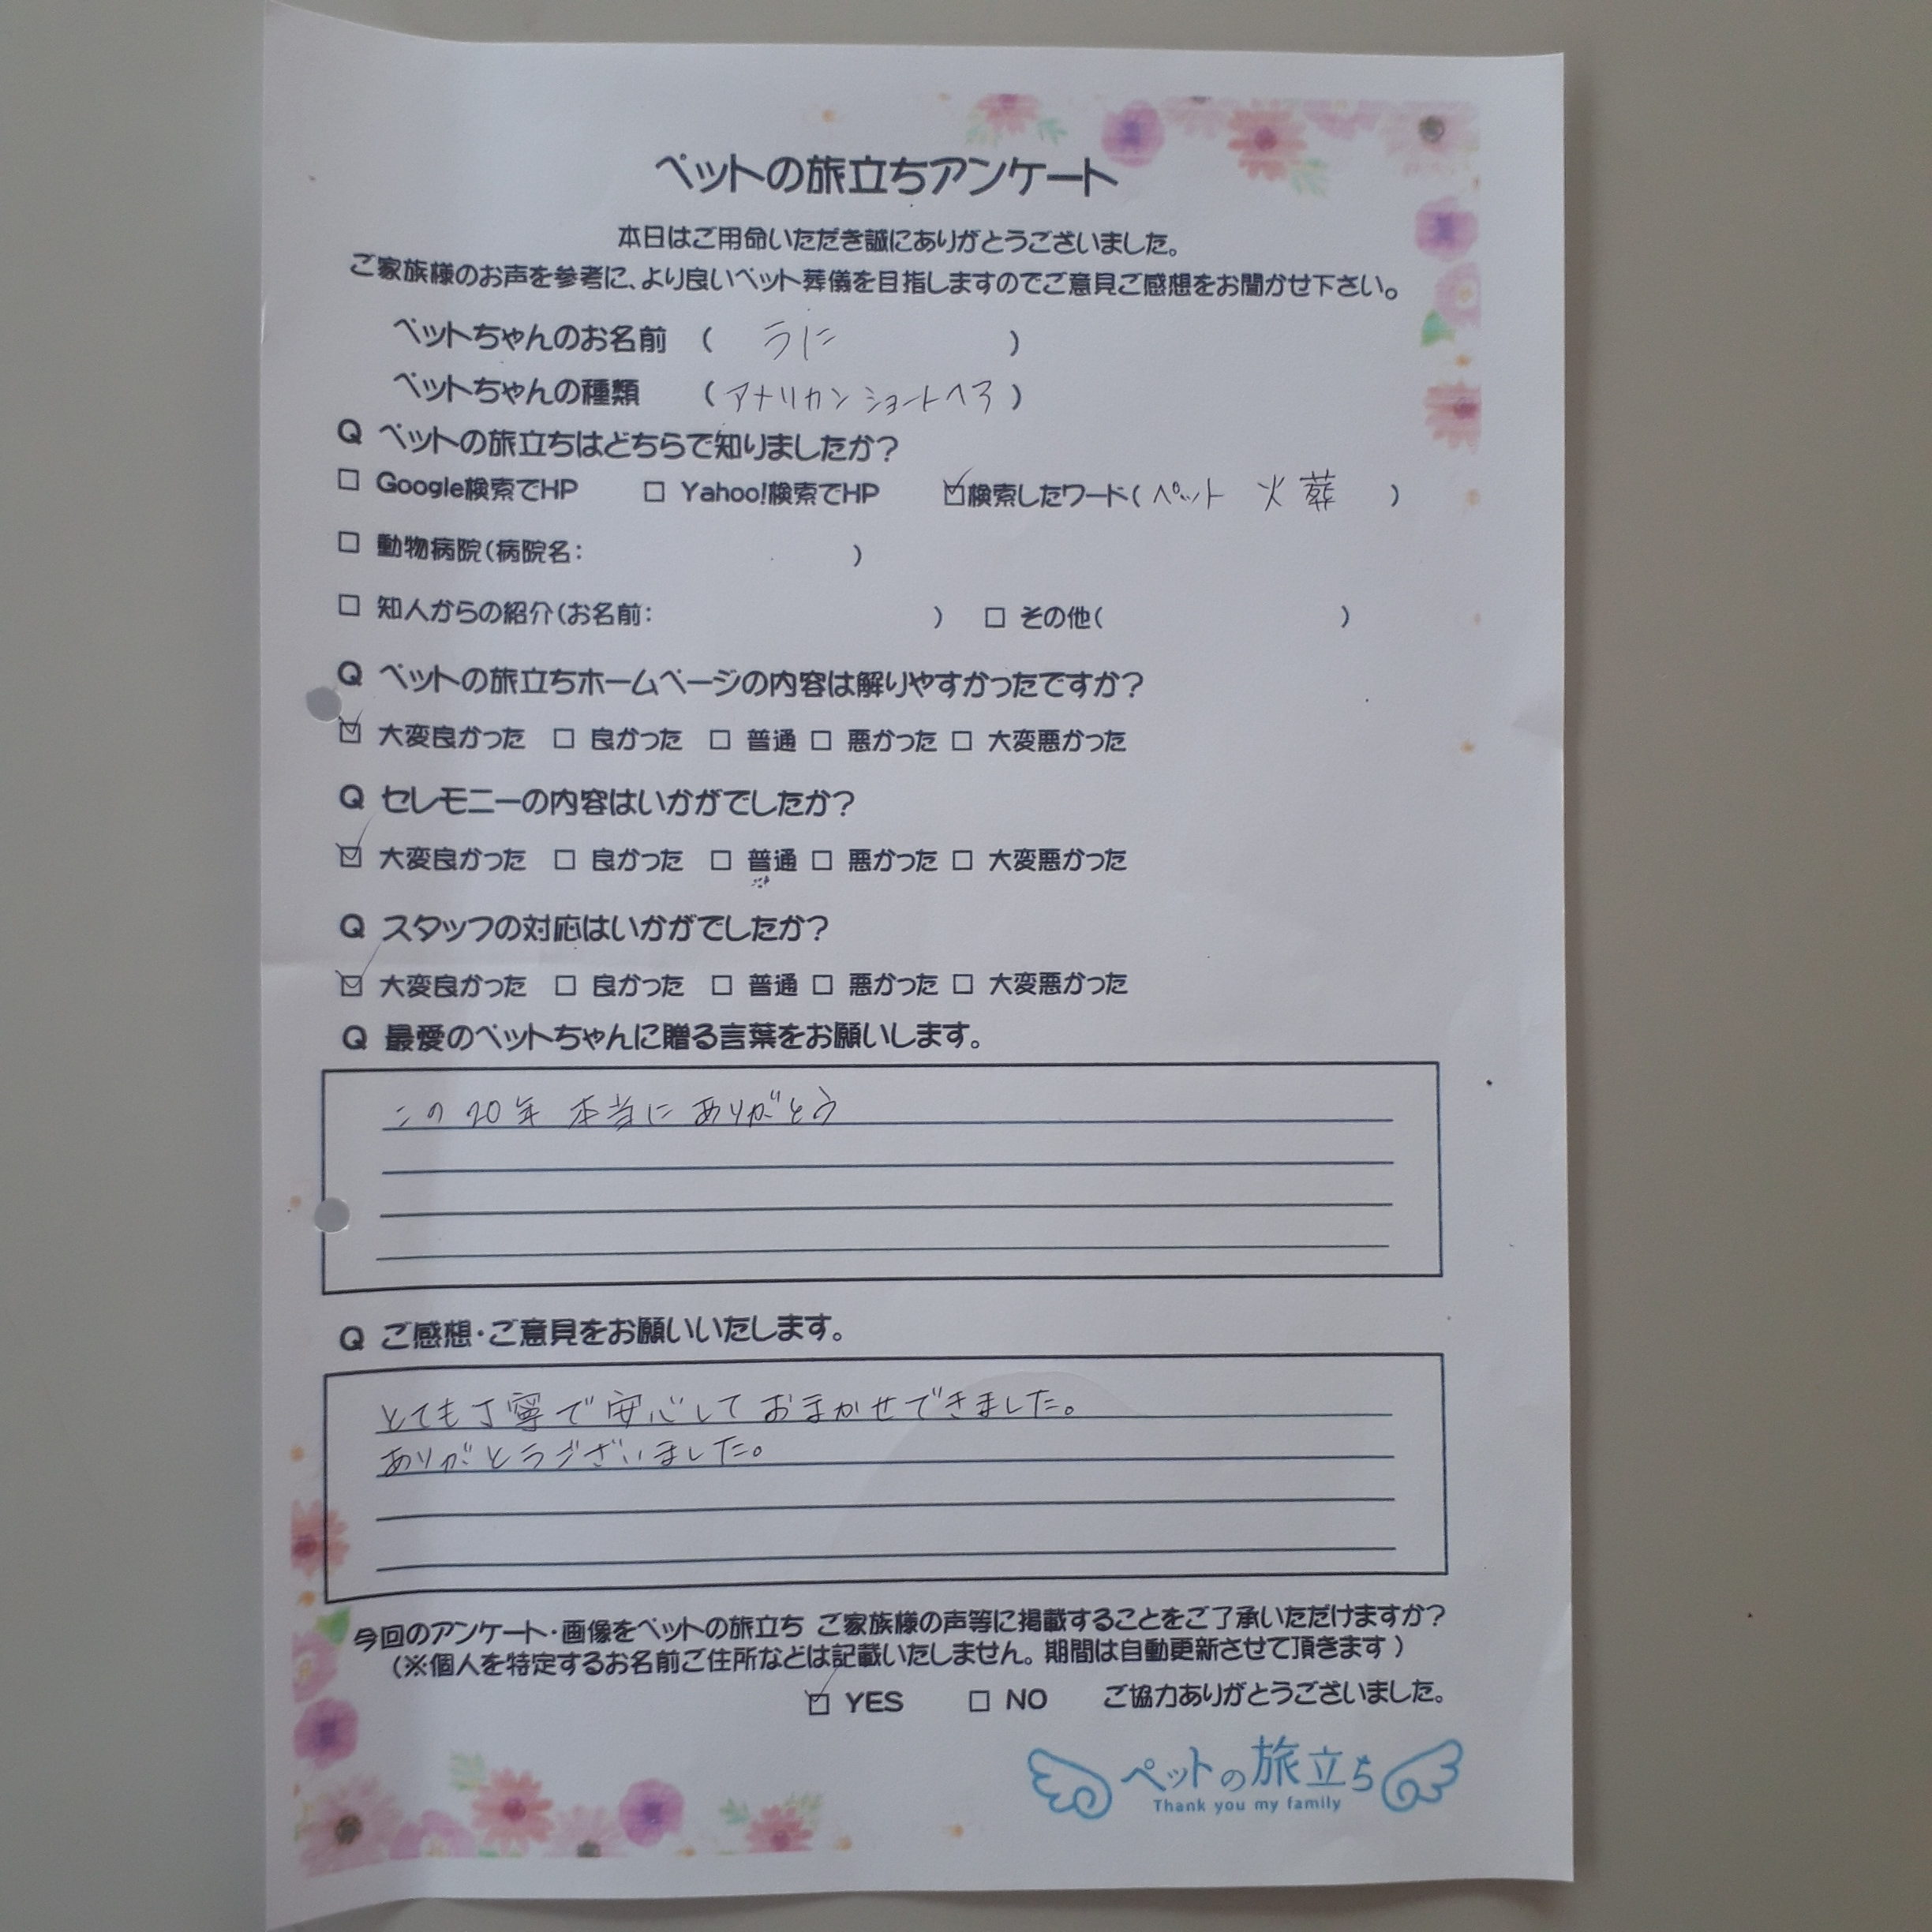 ペットの旅立ちアンケート
本日はご用命いただき誠にありがとうございました。
ご家族様のお声を参考に、より良いペット葬儀を目指しますのでご意見ご感想をお聞かせ下さい。
ペットちゃんのお名前 ( うに )
ペットちゃんの種類 (アメリカンショートヘア)
Q ペットの旅立ちはどちらで知りましたか?
□ Google検索でHP □ Yahoo!検索でHP ☑検索したワード(ペット 火葬 )
□ 動物病院(病院名: )
□ 知人からの紹介(お名前: ) □ その他( )
Q ペットの旅立ちホームページの内容は解りやすかったですか?
☑ 大変良かった □ 良かった □ 普通 □ 悪かった □ 大変悪かった
Q セレモニーの内容はいかがでしたか?
☑ 大変良かった □ 良かった □ 普通 □ 悪かった □ 大変悪かった
Q スタッフの対応はいかがでしたか?
☑ 大変良かった □ 良かった □ 普通 □ 悪かった □ 大変悪かった
Q 最愛のペットちゃんに贈る言葉をお願いします。
この20年 本当に ありがとう
Q ご感想・ご意見をお願いいたします。
とても丁寧で安心しておまかせできました。
ありがとうございました。
今回のアンケート・画像をペットの旅立ち ご家族様の声等に掲載することをご了承いただけますか?
(※個人を特定するお名前ご住所などは記載いたしません。期間は自動更新させて頂きます)
☑ YES □ NO ご協力ありがとうございました。
ペットの旅立ち
Thank you my family